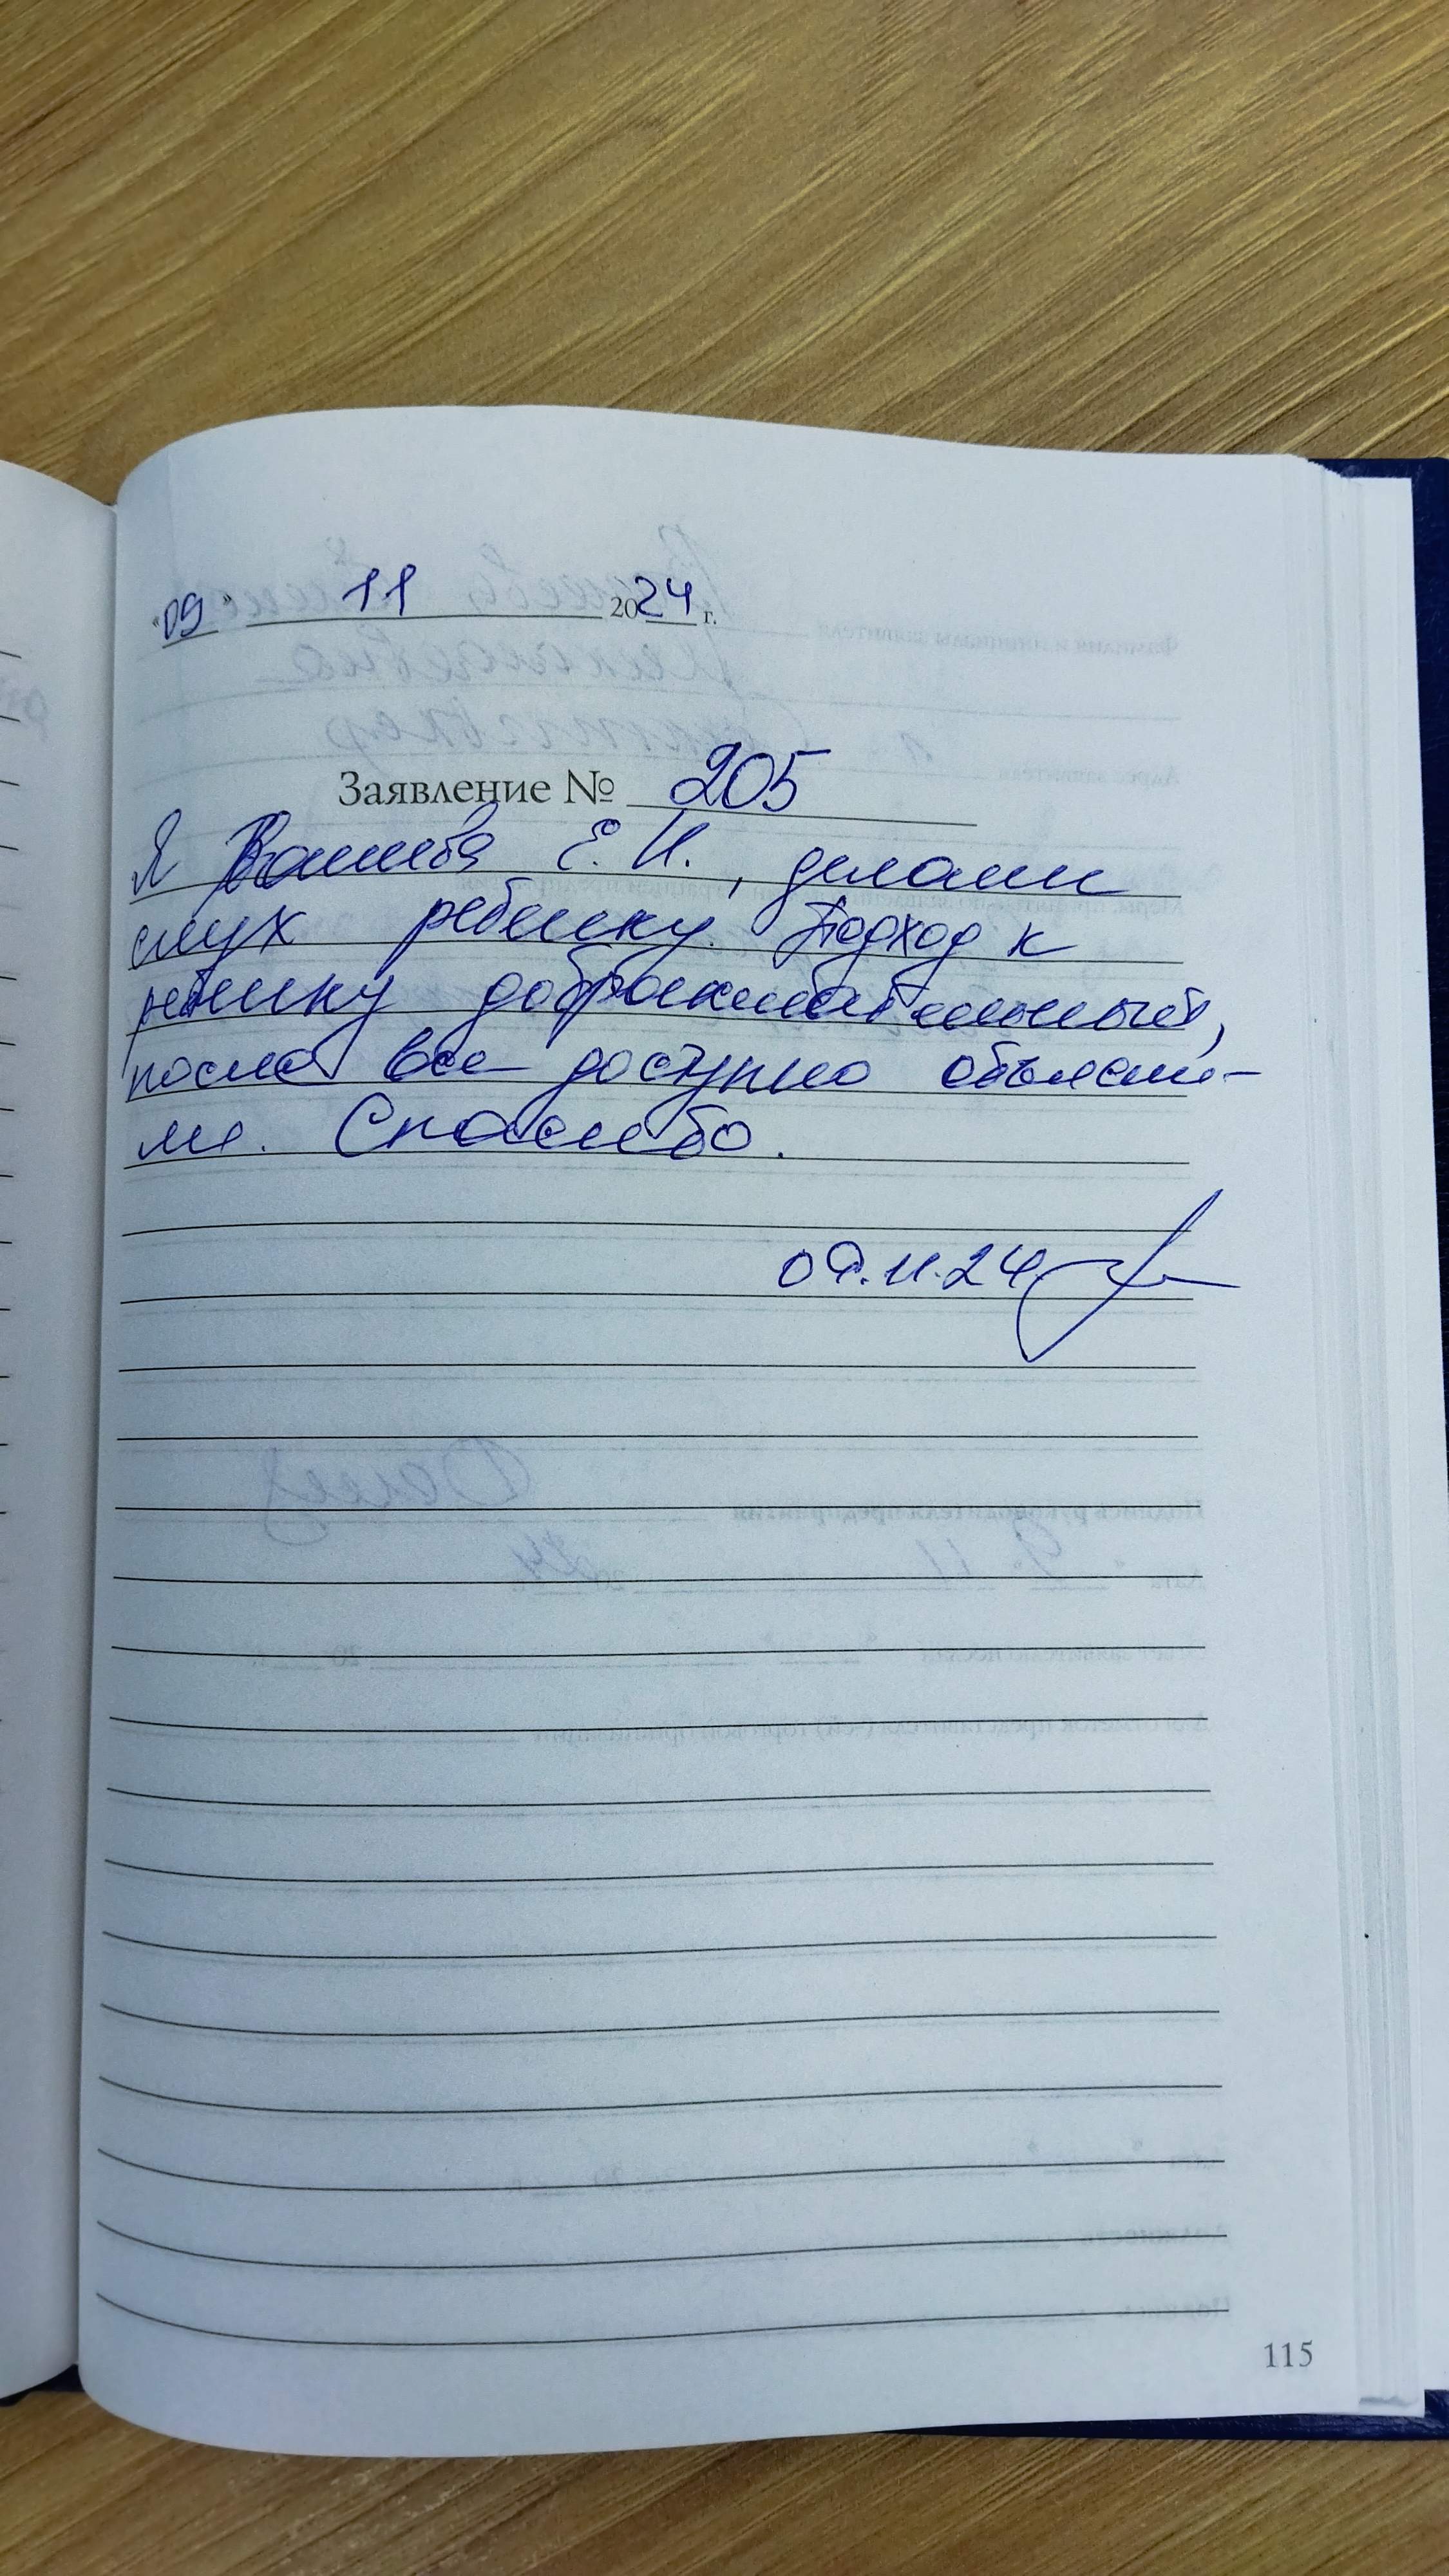 «09» 11 2024 г.
Заявление № 205
Я Е. И., делали
слух ребенку. Подход к
ребенку доброжелательный,
после все доступно объясни-
ли. Спасибо.
09.11.24
115